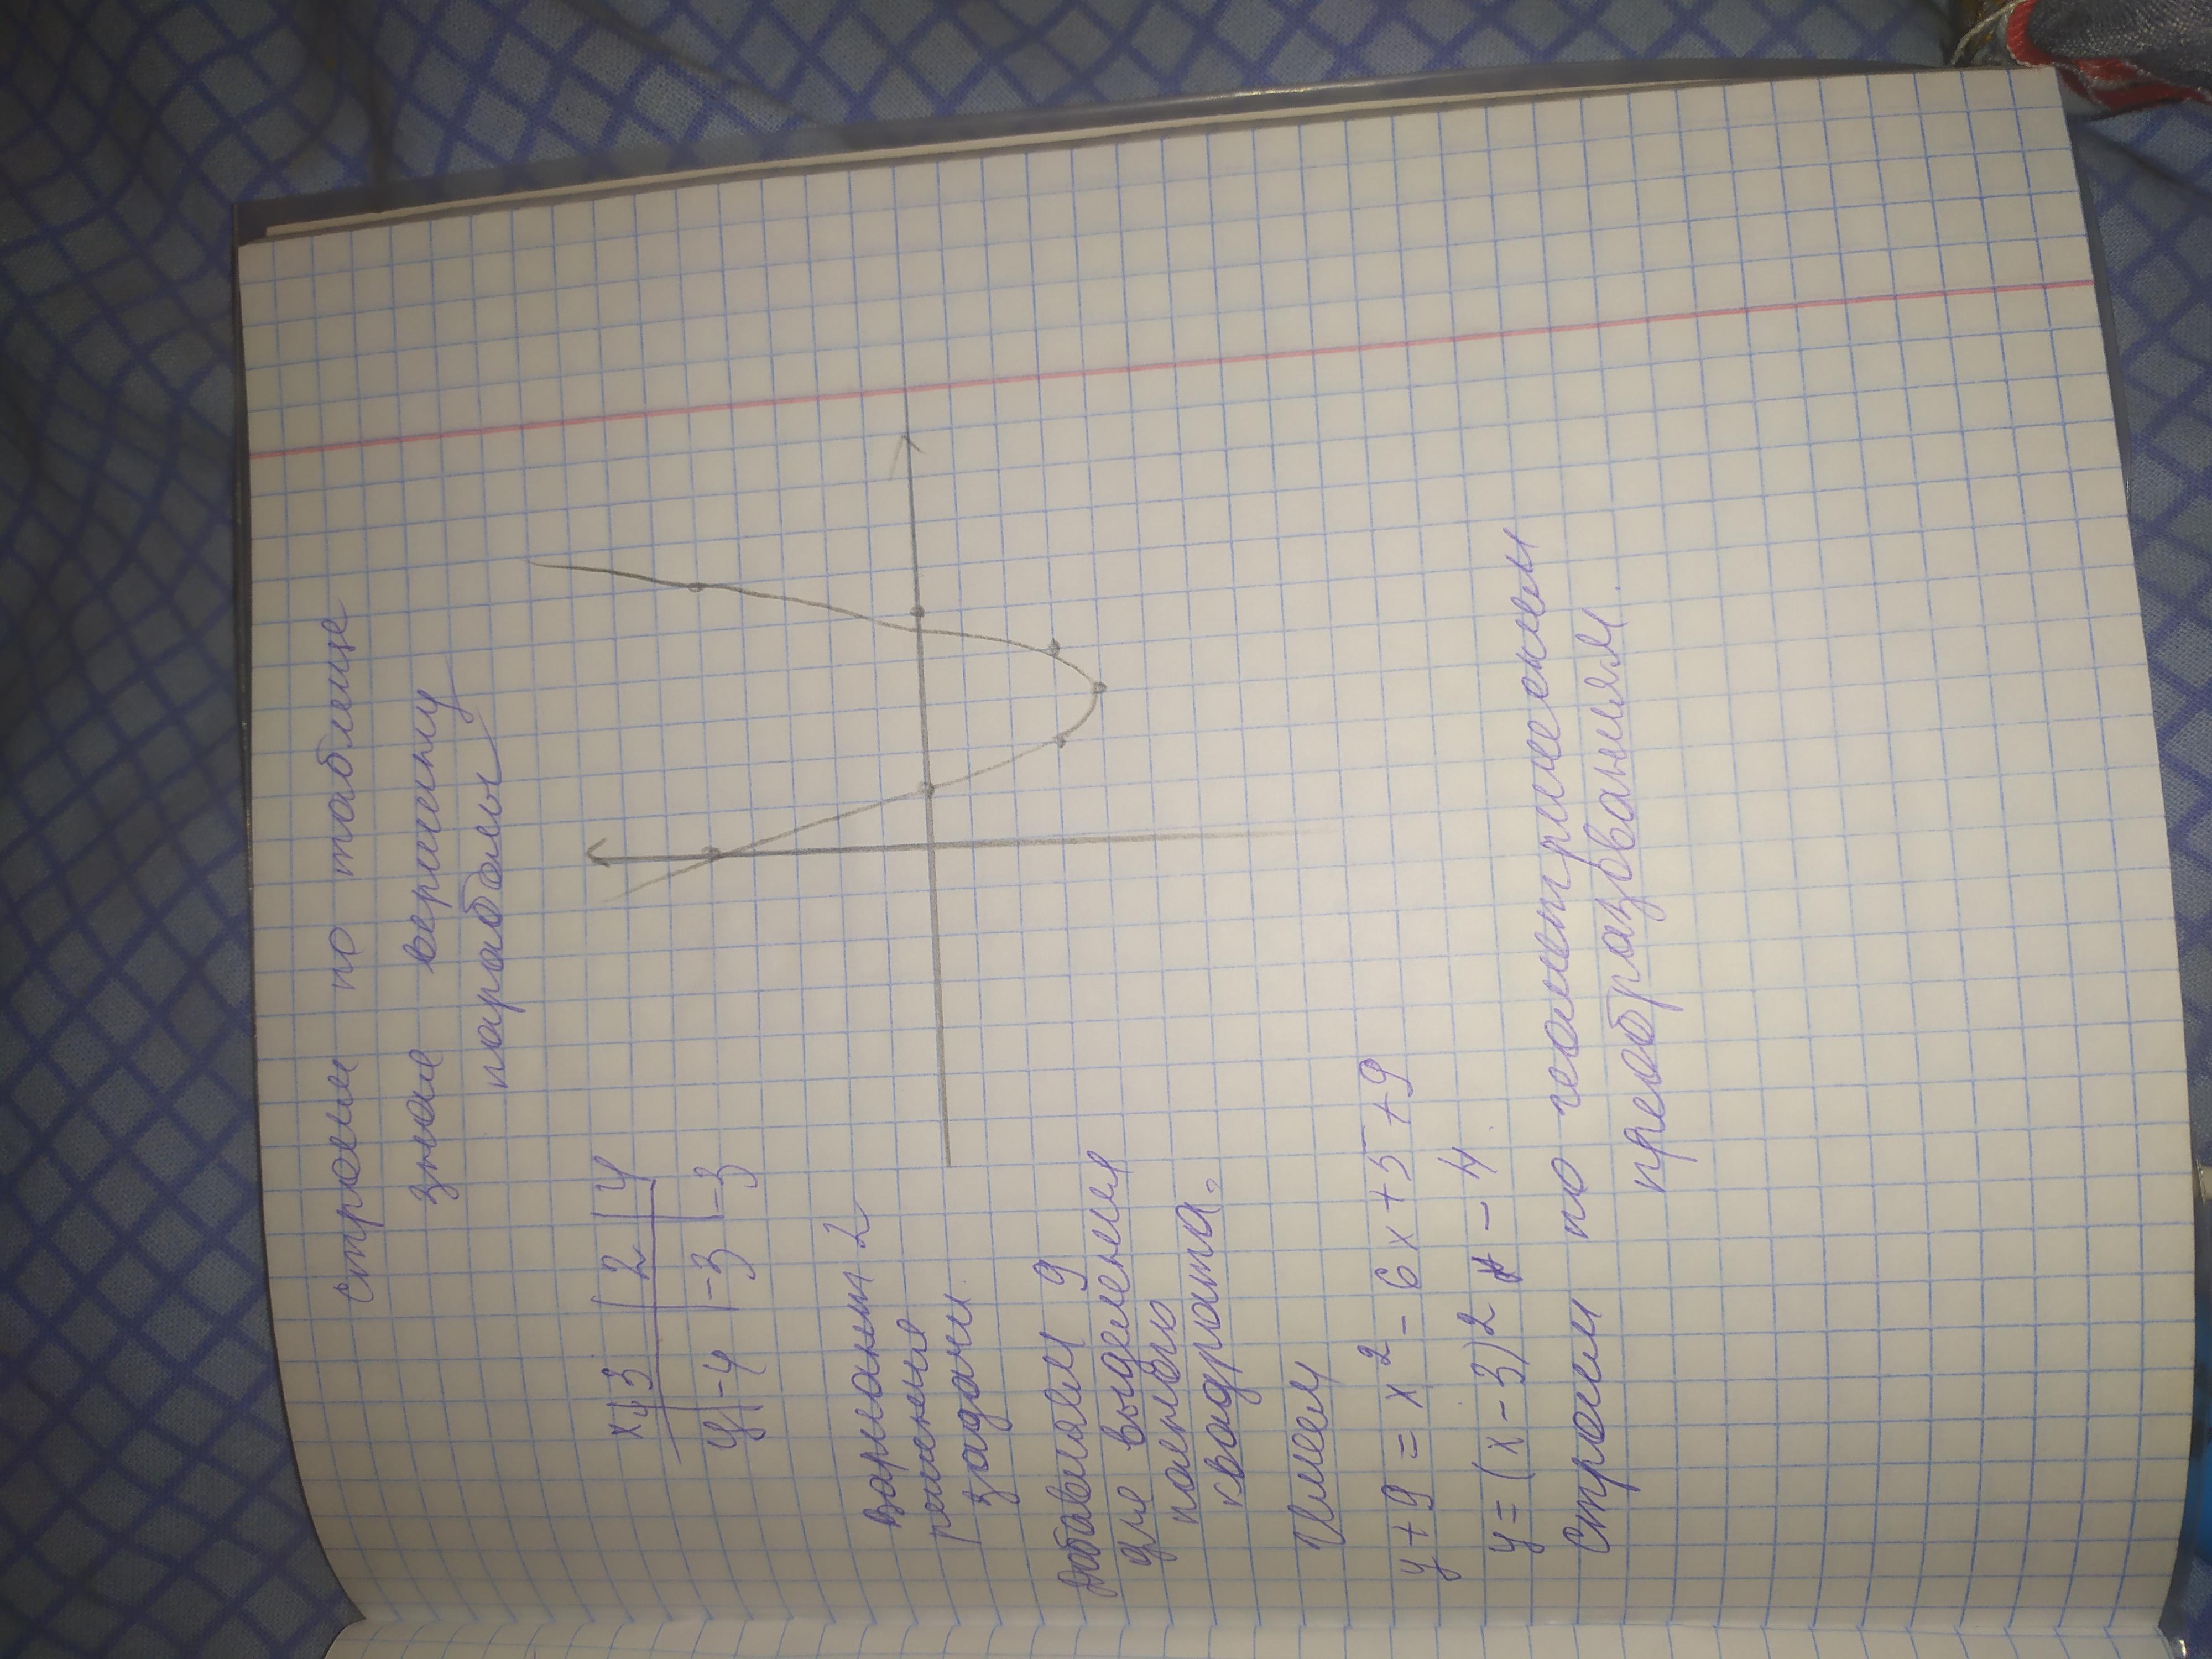 Строем по таблице
зная вершину
параболы
x | 3 | 2 | 4
y | -4 | -3 | -3
вариант 2
решения
задачи
Добавляем 9
для выделения
полного
квадрата.
Имеем
y + 9 = x² - 6x + 5 + 9
y = (x - 3)2 - 4
Строем по геометрическим
преобразованиям.